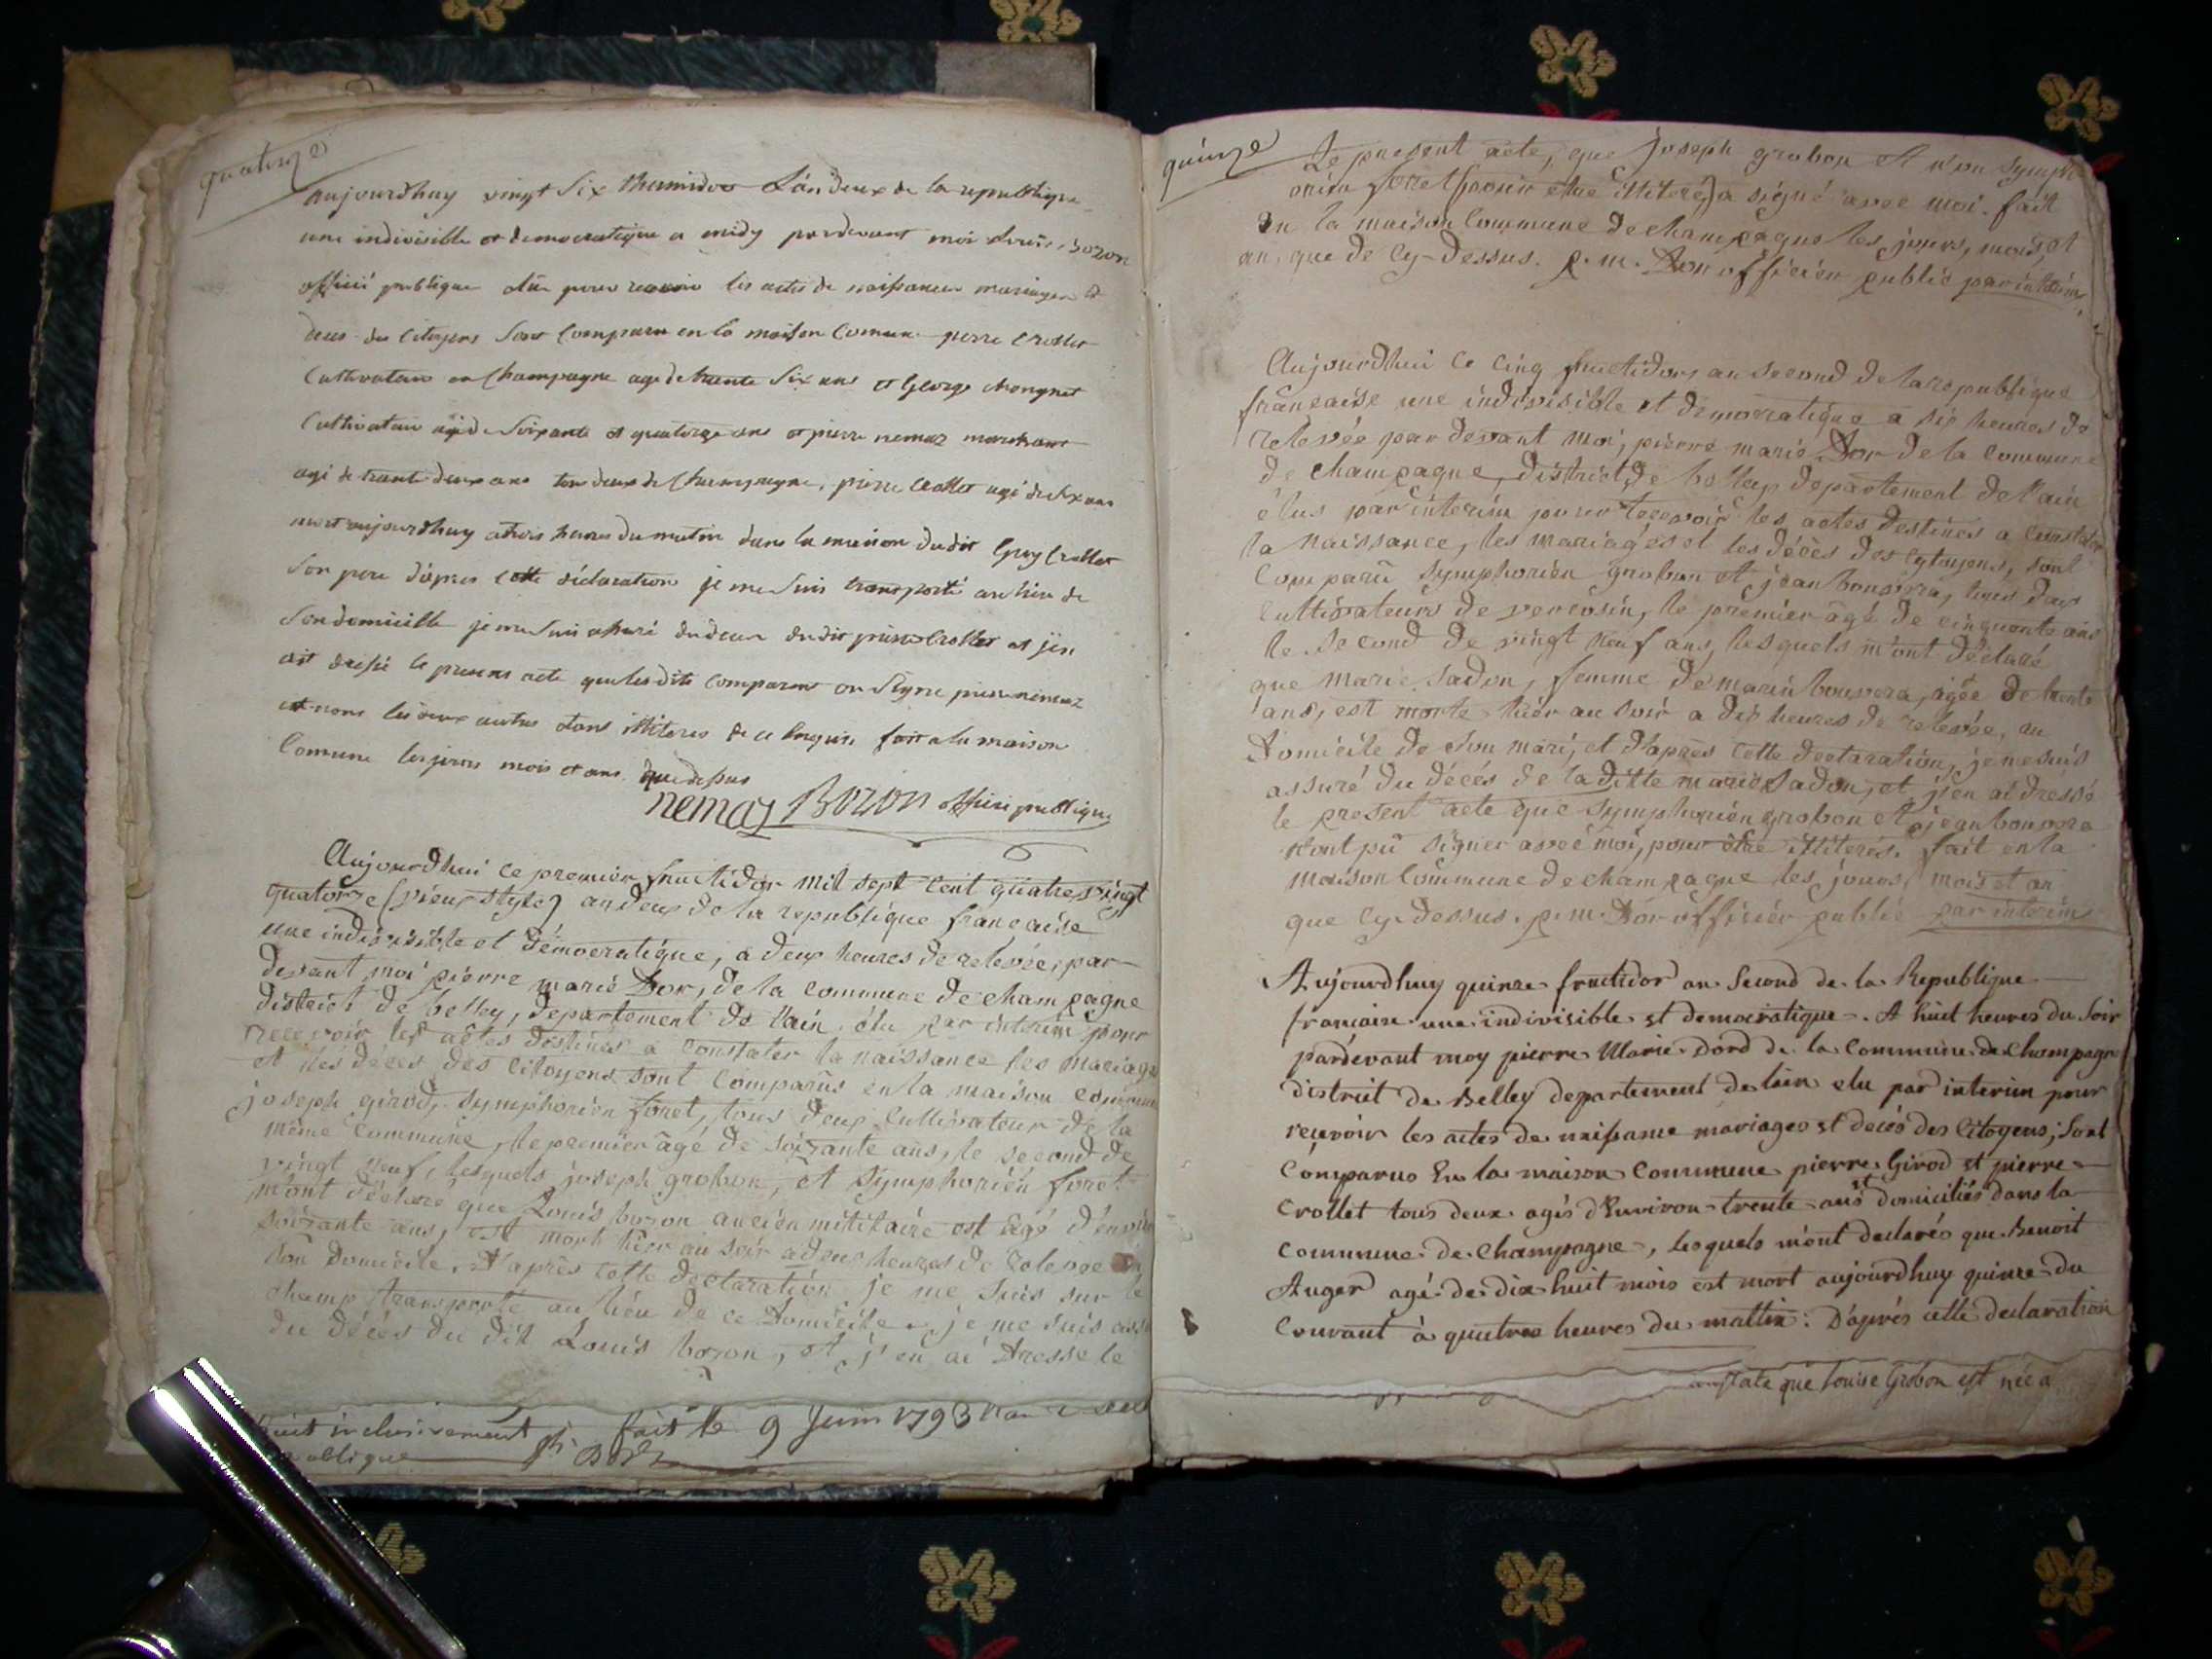 quatorze
aujourdhuy vingt six thermidor L'an deux de la republique
une indivisible et democratique a midy pardevant moi Louis Bozon
officié publique élu pour recevoir les actes de naissances mariages et
deces des citoyens sont comparu en la maison comune pierre Crollet
Cultivateur en Champagne age de trente six ans et George
Cultivateur agé de soixante et quatorze ans et pierre nemoz marchant
agé de trante deux ans tous deux de Champagne, pierre Crollet agé de six ans
mort aujourdhuy a trois heures du matin dans la maison dudit Guy Crollet
son pere d'apres cette déclaration je me suis transporté au lieu de
son domicille je me suis assuré du deces dudit pierre Crollet et j'en
ait dressé le present acte que lesdits comparent on signé pierre nemoz
et non les deux autres etant illiteres de ce enquis fait a la maison
Comune les jours mois et ans que dessus
nemoz Bozon officié publique
Aujourdhui ce premier fructidor mil sept cent quatre vingt
quatorze (vieux style) an deux de la republique française
une indivisible et démocratique, a deux heures de relevée, par
devant moi pierre marie Dor, de la commune de champagne
district de belley, departement de l'ain, élu par interim pour
recevoir les actes destinés a constater la naissance les mariages
et les décès des citoyens sont comparus en la maison commune
joseph girod, symphorien foret, tous deux cultivateur de la
même commune, le premier âgé de soixante ans, le second de
vingt neuf, lesquels joseph grobon, et symphorién foret
m'ont déclaré que Louis bozon ancien militaire est âgé d'environ
soixante ans, est mort hier au soir a deux heures de relevée en
son Domicile. D'après cette declaration je me suis sur le
champ transporté au lieu de ce Domicile. je me suis assuré
du décès du dit Louis bozon, et j'en ai dressé le
huit inclusivement fait le 9 Juin 1793 l'an 2
republique
quinze
Le present acte, que joseph grobon et non symph-
orién foret (pour être illiteré) a signé avec moi. fait
en la maison commune de champagne les jours, mois, et
an, que de cy-dessus. p. m. Dor officier public par interim
Aujourdhui ce cinq fructidor, an second de la republique
française une indivisible et démocratique a six heures de
relevée par devant moi, pierre marie Dor de la commune
de champagne, district de belley departement de l'ain
élus par interim pour recevoir les actes destinés a constater
la naissance, les mariages et les décès des cytoyens, sont
comparû symphorién grobon et jean bonvera, tous deux
cultivateurs de vercosin, le premier âgé de cinquante ans
le second de vingt neuf ans, lesquels m'ont déclaré
que marie Sadon, femme de marin bonvera, agée de trente
ans, est morte hier au soir a dix heures de relevée, au
Domicile de son mari, et d'après cette declaration, je me suis
assuré du décés de la ditte marie Sadon, et j'en ai dréssé
le present acte que symphorién grobon et jean bonvera
n'ont pû signer avec moi, pour être illiterés. fait en la
maison commune de champagne les jours, mois et an
que cy-dessus. p. m. Dor officiér public par interim
Aujourdhuy quinze fructidor an Second de la Republique
francaise une indivisible et democratique. A huit heures du Soir
pardevant moy pierre Marie Dord de la Commune de Champagne
district de Belley departement de l'ain elu par interim pour
reçevoir les actes de naissance mariages et decés des Citoyens; Sont
Comparus En la maison Commune pierre Girod et pierre
Crollet tous deux agés d'Environ trente ans et domiciliés dans la
Commune de Champagne, lesquels m'ont declarés que Benoit
Auger agé de dix huit mois est mort aujourdhuy quinze du
Courant à quatre heures du mattin: D'aprés cette declaration
constate que Louise Grobon est née a